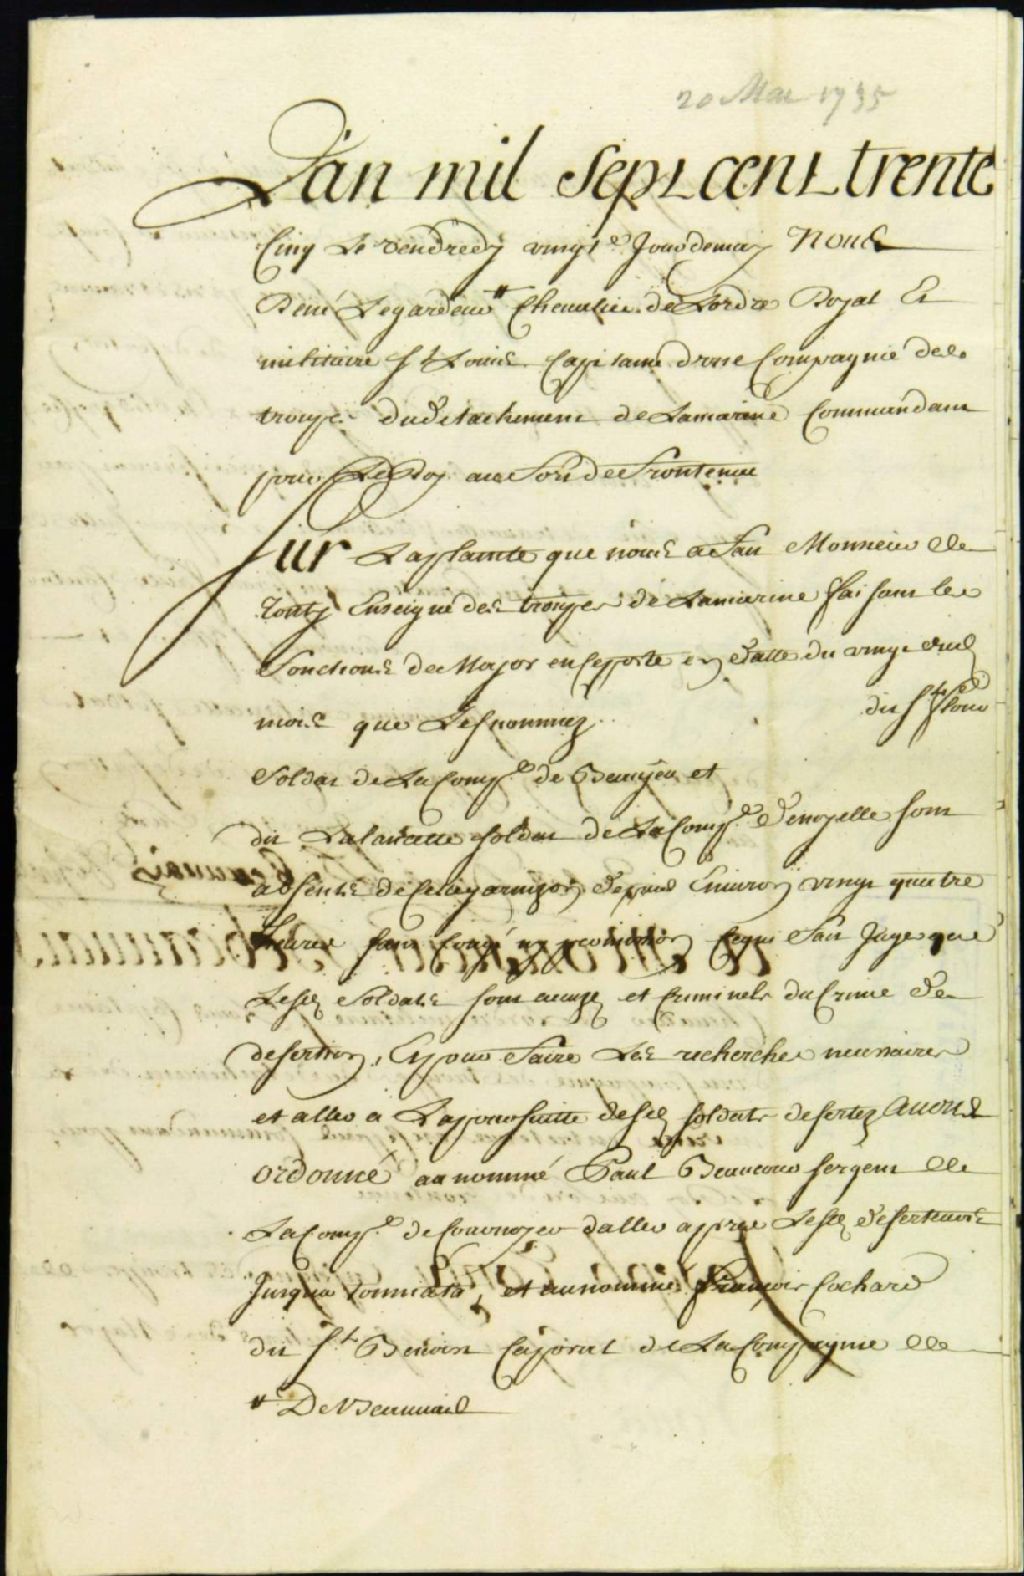 20 Mai 1735
L'an mil sept cent trente
Cinq Le vendredy vingt.e Jour de may Nous
René Legardeur # Chevalier de Lordre Royal Et
militaire St Louis Capitaine d'une Compagnie des
troupes du detachement de Lamarine Commandant
pour Le Roy au Fort de Frontenac
Sur Laplainte que nous a Fait Monsieur de
Tonty Enseigne des troupes de Lamarine faisant les
Fonctions de Major en ce poste en datte du vingt dud
mois que Lesnommez dit St Louis
Soldat de La Comp.e de Beaujeu et
dit Lalancette soldat de La Comp.e Denoyelle sont
absents de cette garnizon depuis Environ vingt quatre
heures sans Congé ny permission ce qui Fait Juger que
Lesd. Soldats sont accuzez et Criminels du Crime de
desertion, Et pour Faire Les recherches necessaires
et aller a Lapoursuitte desd. soldats desertez Avons
ordonné au nommé Paul Beaucour sergent de
La Comp.e de Cournoyer daller apprès Lesd. deserteurs
Jusqua Tonniata, et au nommé François Cochard
dit St Benoist Caporal de La Compagnie de
# De Beauvais